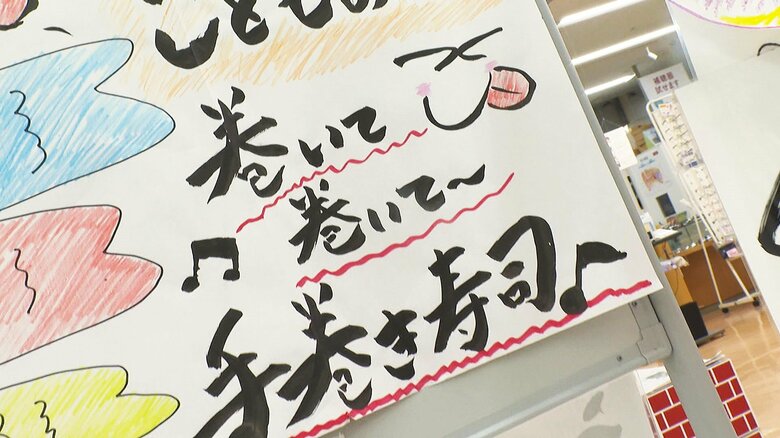 こどもの
巻いて
巻いて～
♪手巻き寿司♪
補聴器
試せます